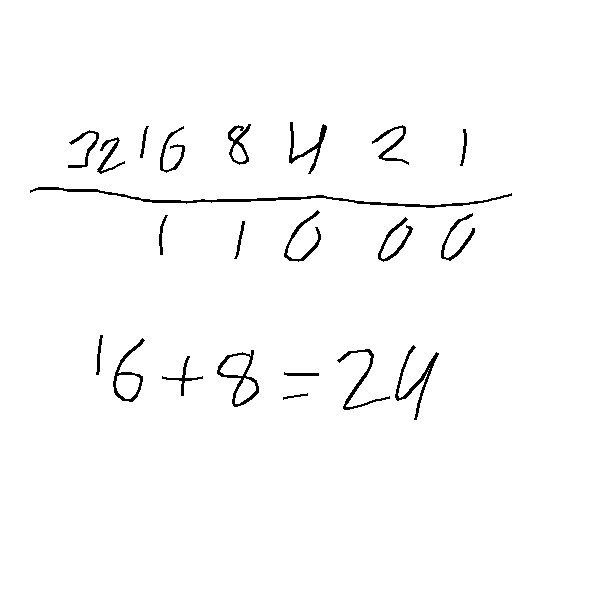 32 16 8 4 2 1
1 1 0 0 0
16+8=24